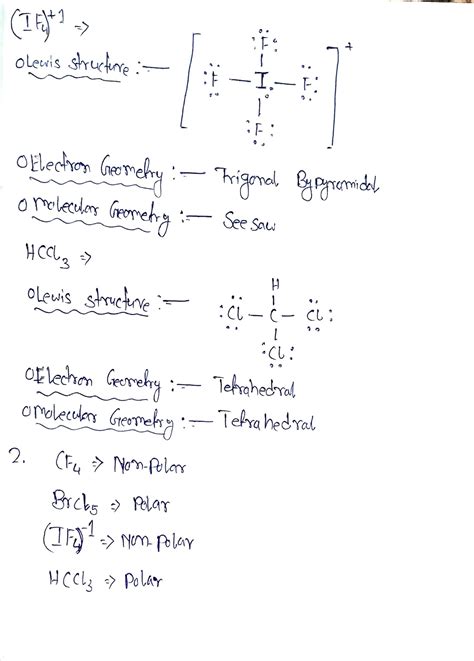 (IF₄)⁺¹ ⇒
○ Lewis structure :— [ :F: :F — I — F: :F: ]⁺
○ Electron Geometry :— Trigonal Bypyramidal
○ Molecular Geometry :— See saw
HCCl₃ ⇒
○ Lewis structure :— H
:Cl — C — Cl:
:Cl:
○ Electron Geometry :— Tetrahedral
○ Molecular Geometry :— Tetrahedral
2. CF₄ ⇒ Non-Polar
BrCl₅ ⇒ Polar
(IF₄)⁻¹ ⇒ Non-Polar
HCCl₃ ⇒ Polar